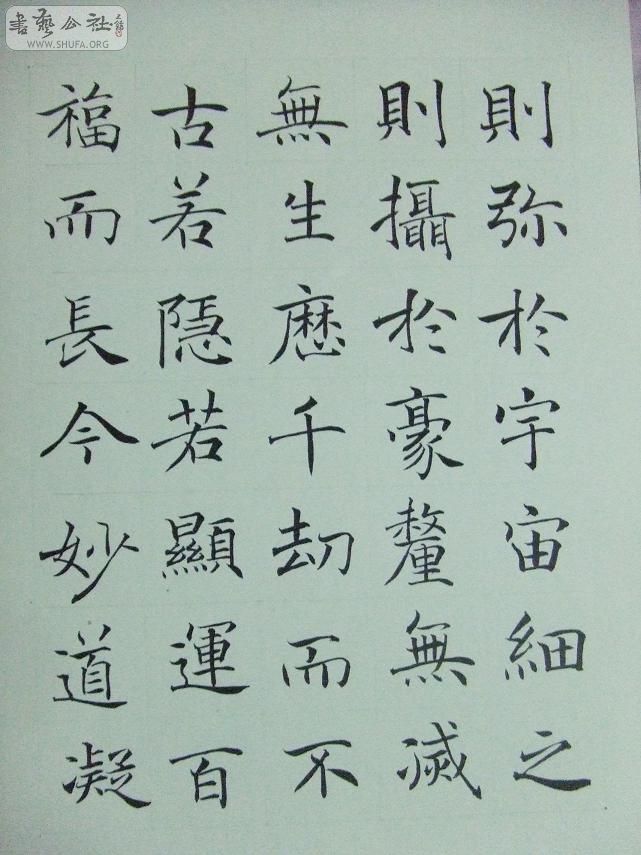 書藝公社
WWW.SHUFA.ORG
則弥於宇宙細之
則攝於豪釐無滅
無生歷千劫而不
古若隱若顯運百
福而長今妙道凝